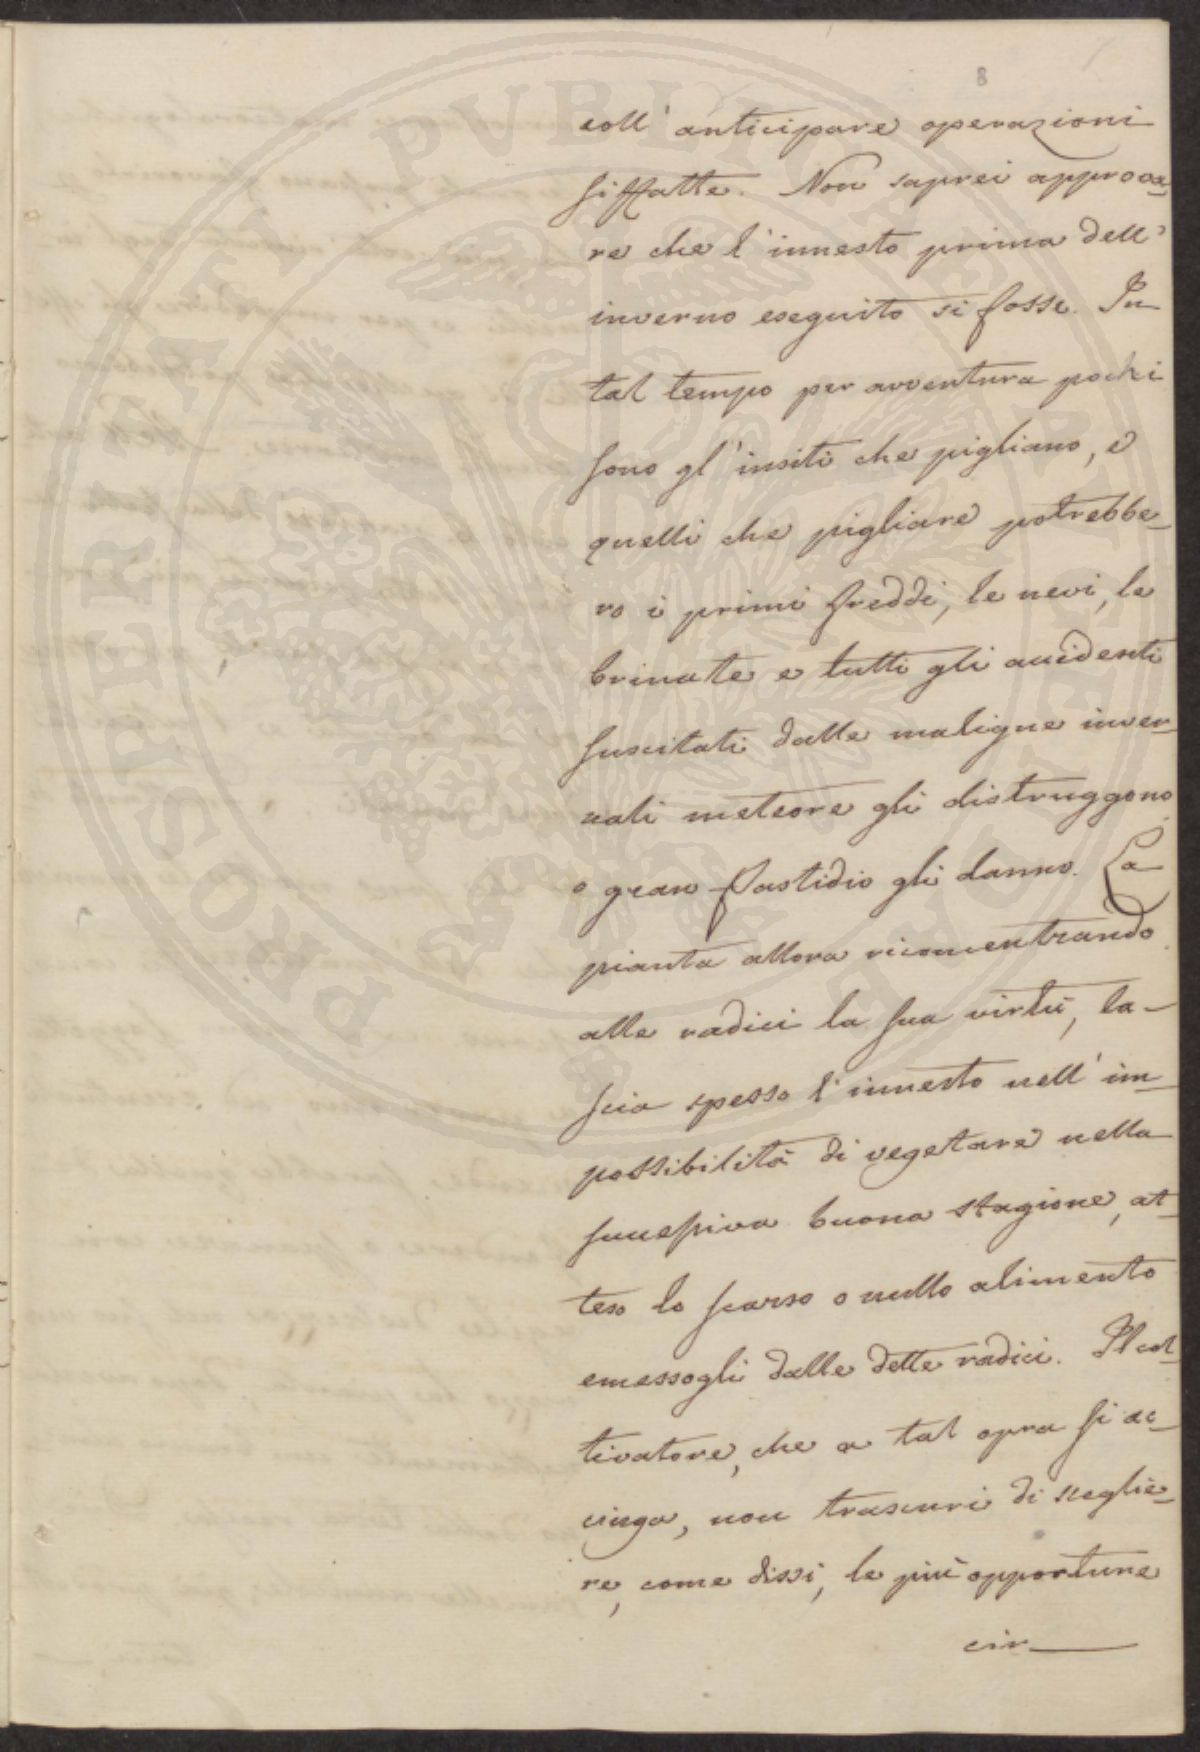 8
coll' anticipare operazioni
siffatte. Non saprei approva-
re che l'innesto prima dell'
inverno eseguito si fosse. In
tal tempo per avventura pochi
sono gl'insiti che pigliano, e
quelli che pigliare potrebbe-
ro i primi freddi, le nevi, le
brinate e tutti gli accidenti
suscitati dalle maligne inver-
nali meteore gli distruggono
o gran fastidio gli danno. La
pianta allora riconcentrando
alle radici la sua virtù, la-
scia spesso l'innesto nell' im-
possibilità di vegetare nella
successiva buona stagione, at-
teso lo scarso o nullo alimento
emessogli dalle dette radici. Il col-
tivatore, che a tal opra si ac-
cinga, non trascuri di sceglie-
re, come dissi, le più opportune
cir-
PROSPERITATI PUBLICAE AUGENDAE